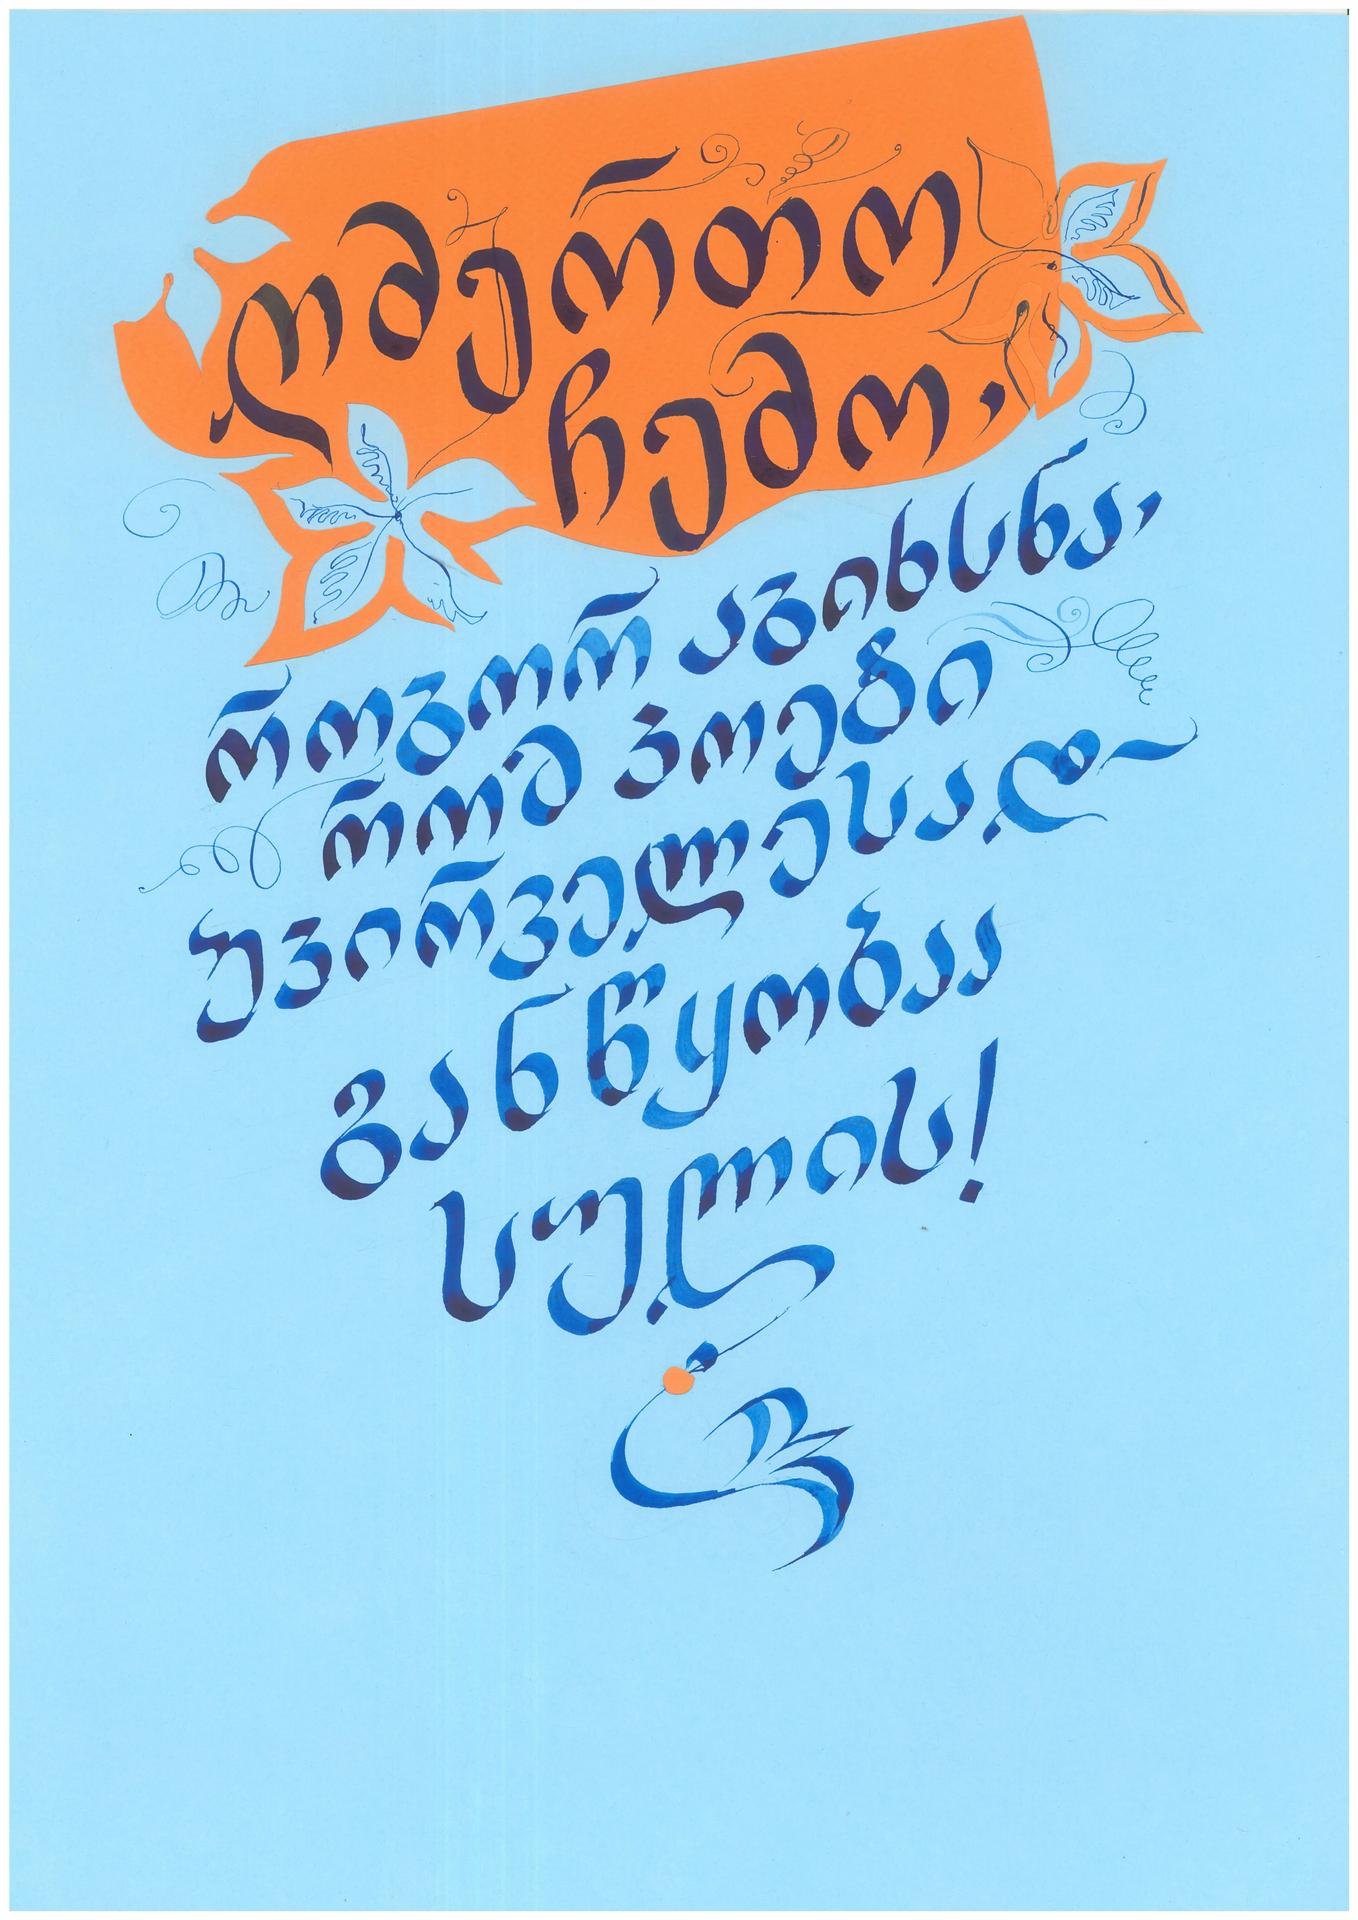 ღმერთო
ჩემო,
როგორ აგიხსნა,
რომ პოეზი
უპირველესად –
განწყობაა
სულის!